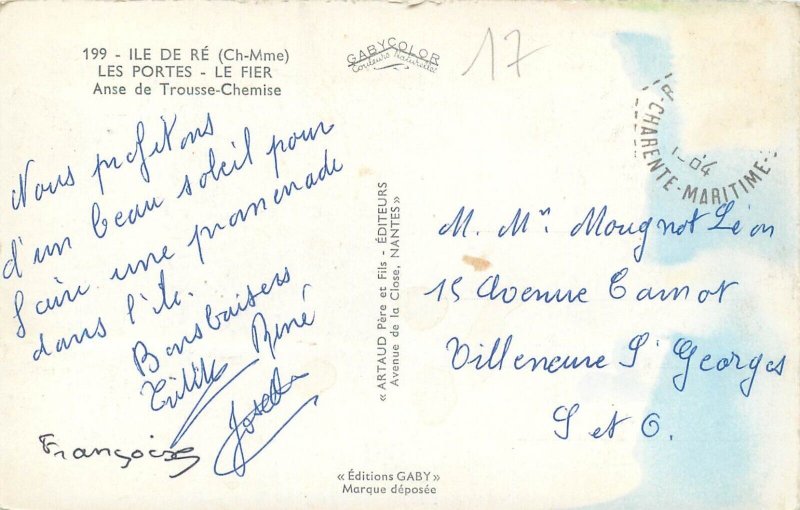 199 - ILE DE RÉ (Ch-Mme)
LES PORTES - LE FIER
Anse de Trousse-Chemise
GABYCOLOR
Couleurs Naturelles
17
CHARENTE-MARITIME
Nous profitons
d'un beau soleil pour
faire une promenade
dans l'île.
Bons baisers
René
Françoise
« ARTAUD Père et Fils - ÉDITEURS
Avenue de la Close, NANTES »
M. Mme Mougnot Léon
15 Avenue Carnot
Villeneuve St Georges
S et O.
« Éditions GABY »
Marque déposée